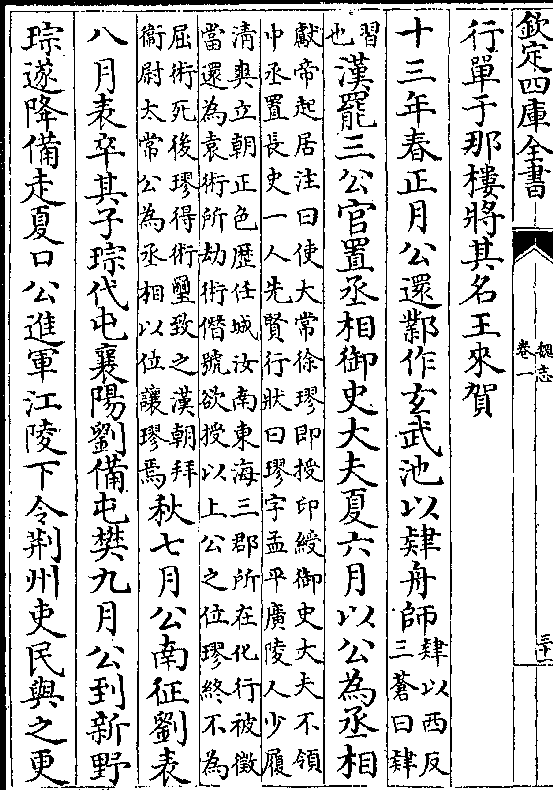 欽定四庫全書
魏志
卷一
三十一
行單于那樓將其名王來賀
十三年春正月公還鄴作玄武池以肄舟師肄以西反
三蒼曰肄
習
也漢罷三公官置丞相御史大夫夏六月以公為丞相
獻帝起居注曰使大常徐璆即授印綬御史大夫不領
中丞置長史一人先賢行狀曰璆字孟平廣陵人少履
清爽立朝正色歷任城汝南東海三郡所在化行被徵
當還為袁術所劫術僭號欲授以上公之位璆終不為
屈術死後璆得術璽致之漢朝拜
衞尉太常公為丞相以位讓璆焉秋七月公南征劉表
八月表卒其子琮代屯襄陽劉備屯樊九月公到新野
琮遂降備走夏口公進軍江陵下令荆州吏民與之更